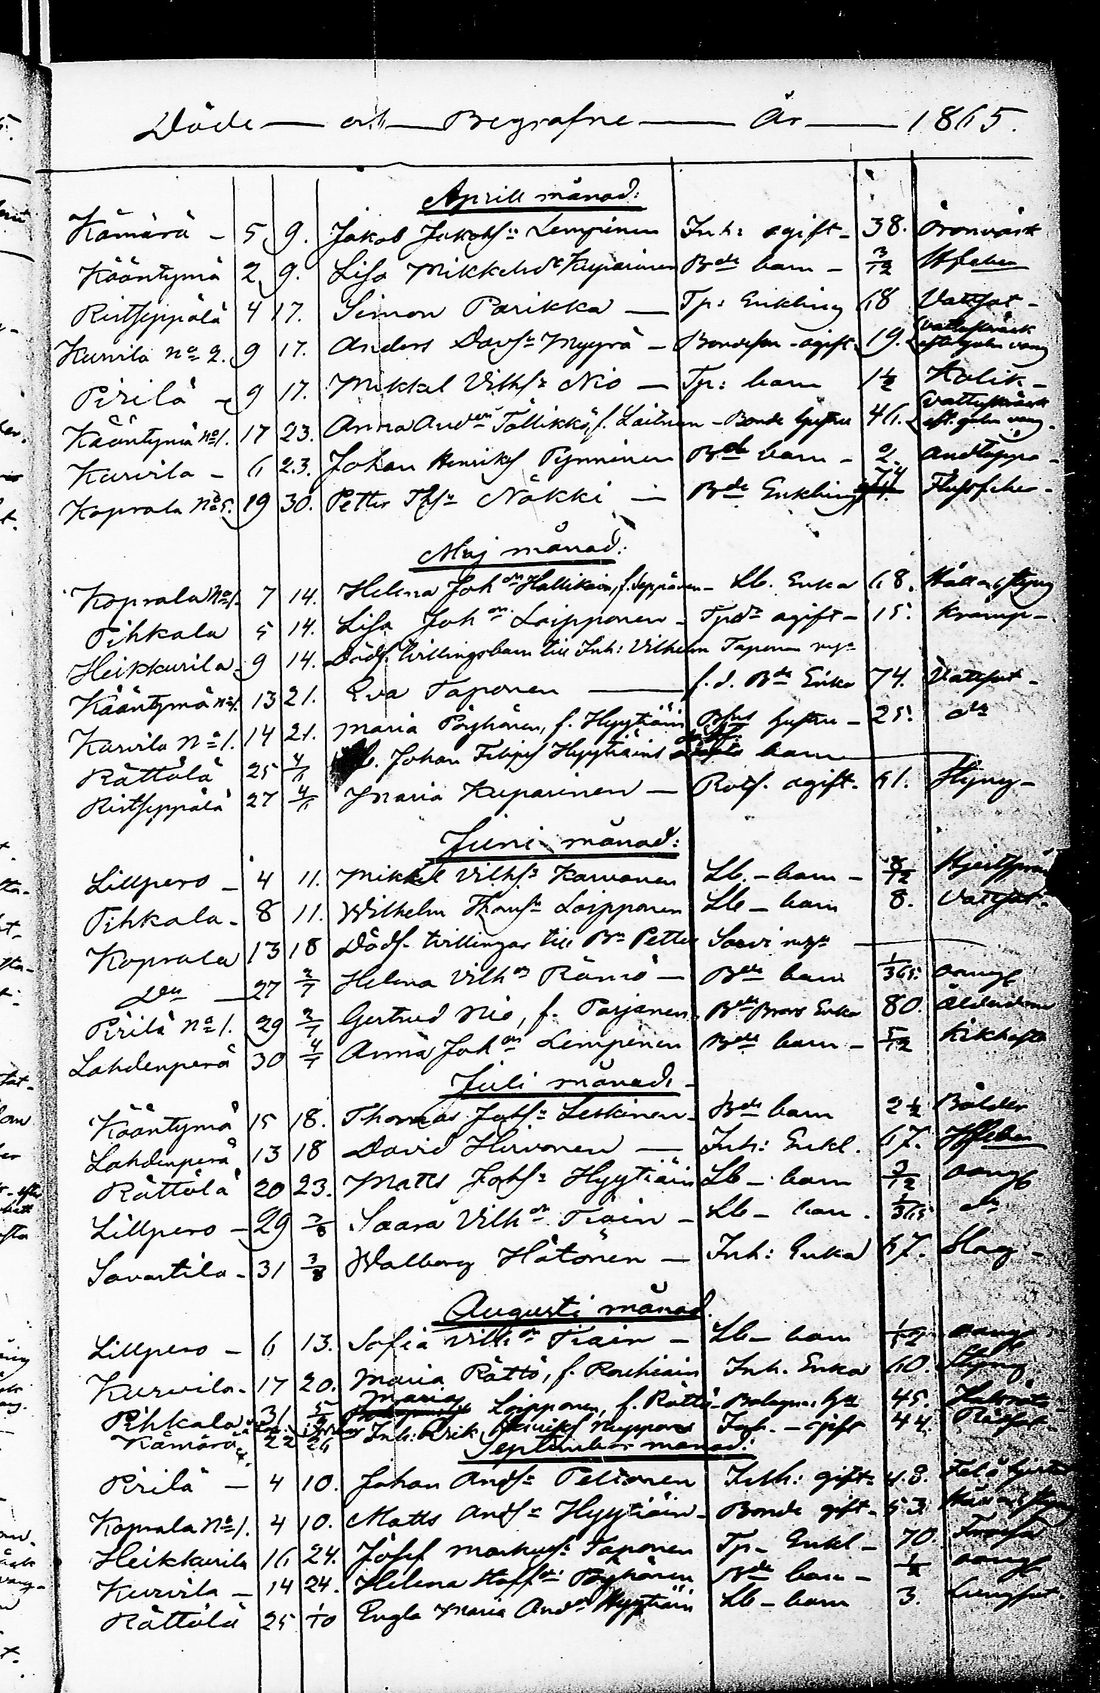 Döde — och — Begrafne — År — 1865.
Aprill månad:
Kämärä – 5 9. Jakob Jakobsn Lempinen Inh: ogift – 38.
Kääntymä 2 9. Lisa Mikkelsdr Kuparinen Bde barn – 3/12
Riitseppälä 4 17. Simon Parikka — Tp: Enkling 68 Vattsot –
Kurvila No 2. 9 17. Anders Davsn Myyrä – Bondeson ogift. 19.
Pirilä – 9 17. Mikkel Vilhsn Nio — Tp: barn 1 1/2 Kolik –
Kääntymä No 1. 17 23. Anna Andr Tållikko, f. Laitinen – Bonde hustru 46.
Kurvila – 6 23. Johan Henriks Pynninen Bde barn – 2. andtäppa –
Koprala No 5. 19 30. Petter Thsn Näkki — Bde Enkling 74
Maj månad:
Koprala No 1. 7 14. Helena Joh Hallikain, f. Seppänen – Lb. Enka 68. Håll o. styng
Pihkala 5 14. Lisa Joh Loipponen – Tpdr ogift – 15. kramp –
Heikkurila – 9 14. Dödf. tvillingsbarn till Inh: Vilhelm Taponen
Kääntymä No 1. 13 21. Eva Taponen — f. d. Bde Enka 74. Vattsot –
Kurvila No 1. 14 21. Maria Pöyhönen, f. Hyytiäin hustru – 25. do
Rättölä 25 4/6 Johan Filips Hyytiäins barn
Riitseppälä 27 4/6 Maria Kuparinen — ogift. 61. Styng –
Juni månad:
Lillpero – 4 11. Mikkel Vilhsn Karvanen Lb. – barn – 8/12
Pihkala – 8 11. Wilhelm Thomsn Loipponen Lb – barn 8. Vattsot.
Koprala 13 18 Dödf. tvillingar till Bn Petter Saavi
Do — 27 2/7 Helena Vilh Rämö — Bde barn 1/365 oangf
Pirilä No 1. 29 2/7 Gertrud Nio, f. Parjanen, Bde Brors Enka 80. Ålderdom
Lahdenperä 30 4/7 Anna Joh Lempinen Bde barn – 5/12 Kikhosta
Juli månad:
Kääntymä 15 18. Thomas Johsn Leskinen – Bde barn 2 1/2 Bölder
Lahdenperä 13 18 David Hirvonen — Inh: Enkl. 67.
Rättölä 20 23. Matts Johsn Hyytiäin Lb – barn 7/12 oangf
Lillpero – 29 7/8 Saara Vilh Tiain – Lb – barn. 1/365 do
Savastila – 31 3/8 Walborg Hätönen — Inh: Enka 67. Slag –
Augusti månad.
Lillpero – 6 13. Sofia Vilh Tiain – Lb – barn 1/12 oangf
Kurvila – 17 20. Maria Rättö, f. Rachiain Inh. Enka 60. Styng
Pihkala 31 Maria Loipponen, f. Rättö – Bolagm. 45.
Kämärä 22 26 Inh: Erik Nupponen Inh. – ogift 44. Rödsot.
September månad.
Pirilä — 4 10. Johan Andsn Peltonen Inh: gift – 48.
Koprala No 1. 4 10. Matts Andsn Hyytiäin – Bonde gift – 53. Håll o. styng
Heikkurila 16 24. Josef Markussn Taponen Tp – Enkl – 70.
Kurvila – 14 24. Helena Pöyhönen Bde barn – oangf
Rättölä 25 1/10 Engla Maria And Hyytiäin Lb – barn 3. Lungsot.